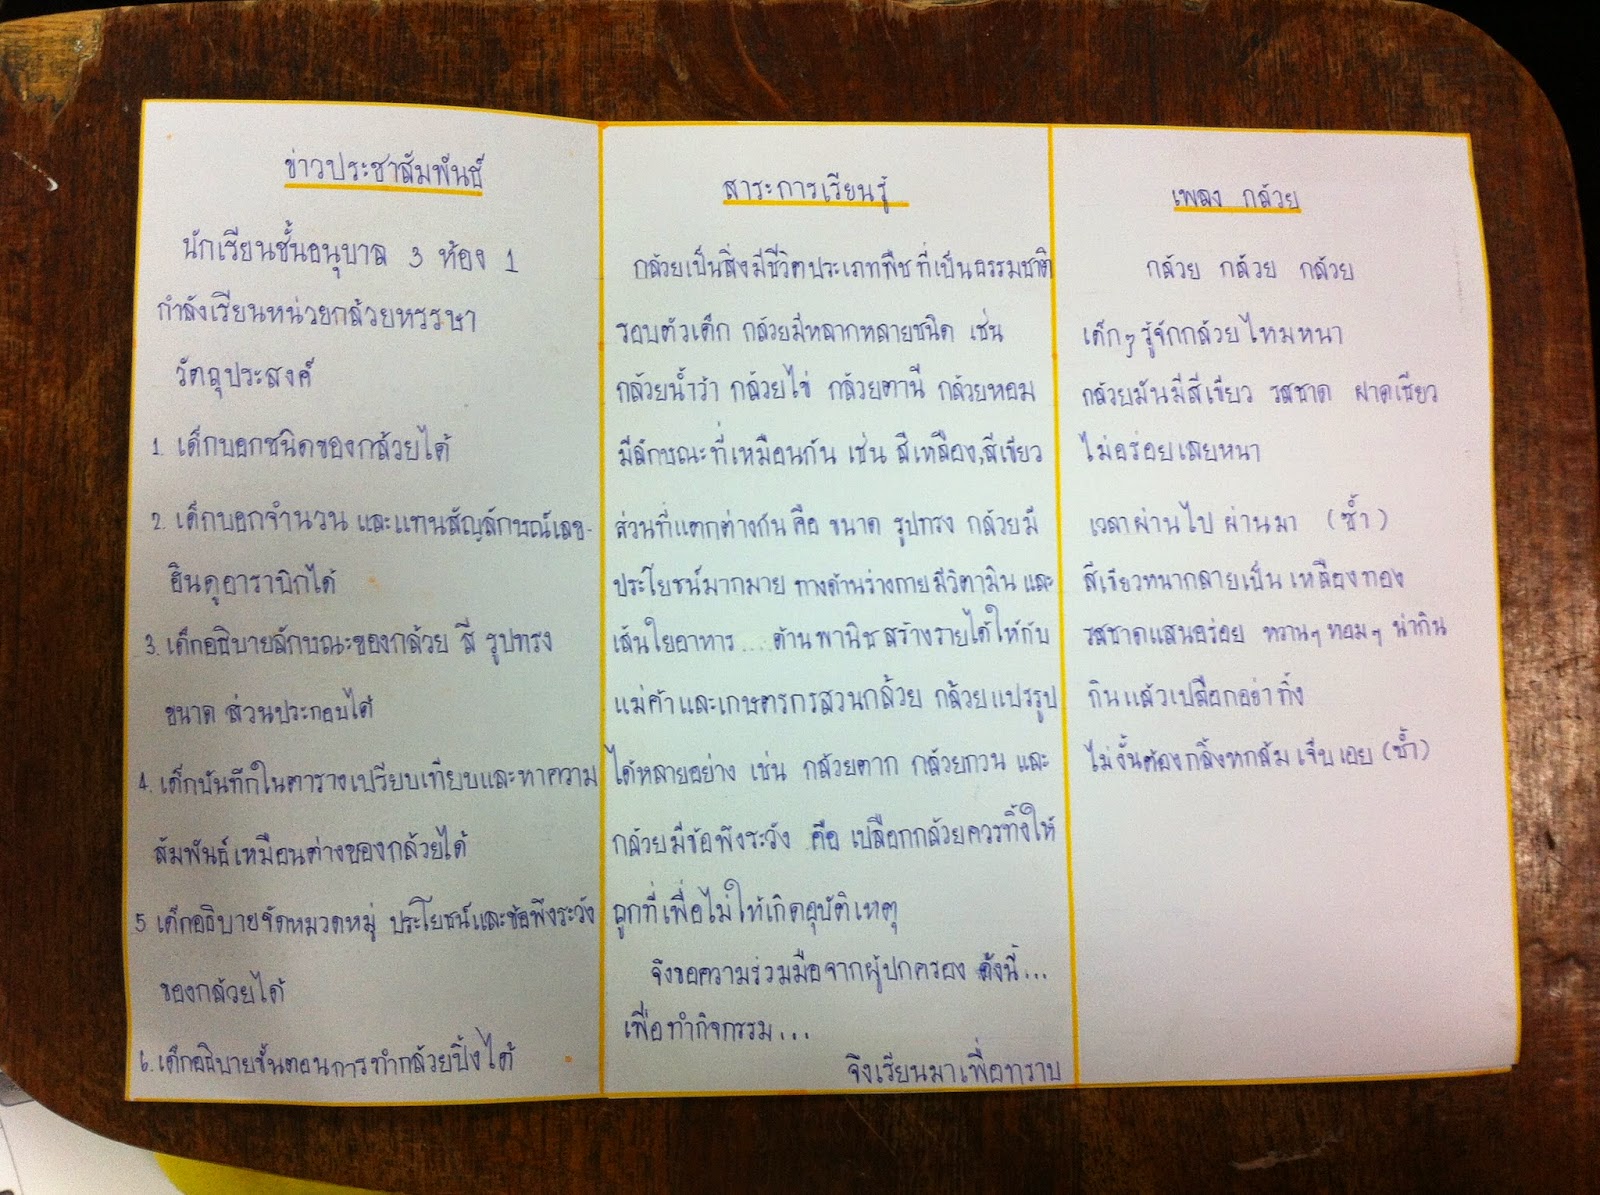 ข่าวประชาสัมพันธ์
นักเรียนชั้นอนุบาล 3 ห้อง 1
กำลังเรียนหน่วยกล้วยหรรษา
วัตถุประสงค์
1. เด็กบอกชนิดของกล้วยได้
2. เด็กบอกจำนวน และแทนสัญลักษณ์เลข-
ฮินดูอาราบิกได้
3. เด็กอธิบายลักษณะของกล้วย สี รูปทรง
ขนาด ส่วนประกอบได้
4. เด็กบันทึกในตารางเปรียบเทียบและหาความ
สัมพันธ์เหมือนต่างของกล้วยได้
5 เด็กอธิบายจัดหมวดหมู่ ประโยชน์และข้อพึงระวัง
ของกล้วยได้
6. เด็กอธิบายขั้นตอนการทำกล้วยปิ้งได้
สาระการเรียนรู้
กล้วยเป็นสิ่งมีชีวิตประเภทพืชที่เป็นธรรมชาติ
รอบตัวเด็ก กล้วยมีหลากหลายชนิด เช่น
กล้วยน้ำว้า กล้วยไข่ กล้วยตานี กล้วยหอม
มีลักษณะที่เหมือนกัน เช่น สีเหลือง,สีเขียว
ส่วนที่แตกต่างกันคือ ขนาด รูปทรง กล้วยมี
ประโยชน์มากมาย ทางด้านร่างกายมีวิตามิน และ
เส้นใยอาหาร....ด้านพานิชสร้างรายได้ให้กับ
แม่ค้าและเกษตรกรสวนกล้วย กล้วยแปรรูป
ได้หลายอย่าง เช่น กล้วยตาก กล้วยกวน และ
กล้วยมีข้อพึงระวัง คือ เปลือกกล้วยควรทิ้งให้
ถูกที่เพื่อไม่ให้เกิดอุบัติเหตุ
จึงขอความร่วมมือจากผู้ปกครอง ดังนี้...
เพื่อทำกิจกรรม...
จึงเรียนมาเพื่อทราบ
เพลง กล้วย
กล้วย กล้วย กล้วย
เด็กๆ รู้จักกล้วยไหมหนา
กล้วยมันมีสีเขียว รสชาด ฝาดเชียว
ไม่อร่อยเลยหนา
เวลาผ่านไป ผ่านมา (ซ้ำ)
สีเขียวหนากลายเป็น เหลืองทอง
รสชาดแสนอร่อย หวานๆ หอมๆ น่ากิน
กินแล้วเปลือกอย่าทิ้ง
ไม่งั้นต้องกลิ้งหกล้ม เจ็บเอย (ซ้ำ)